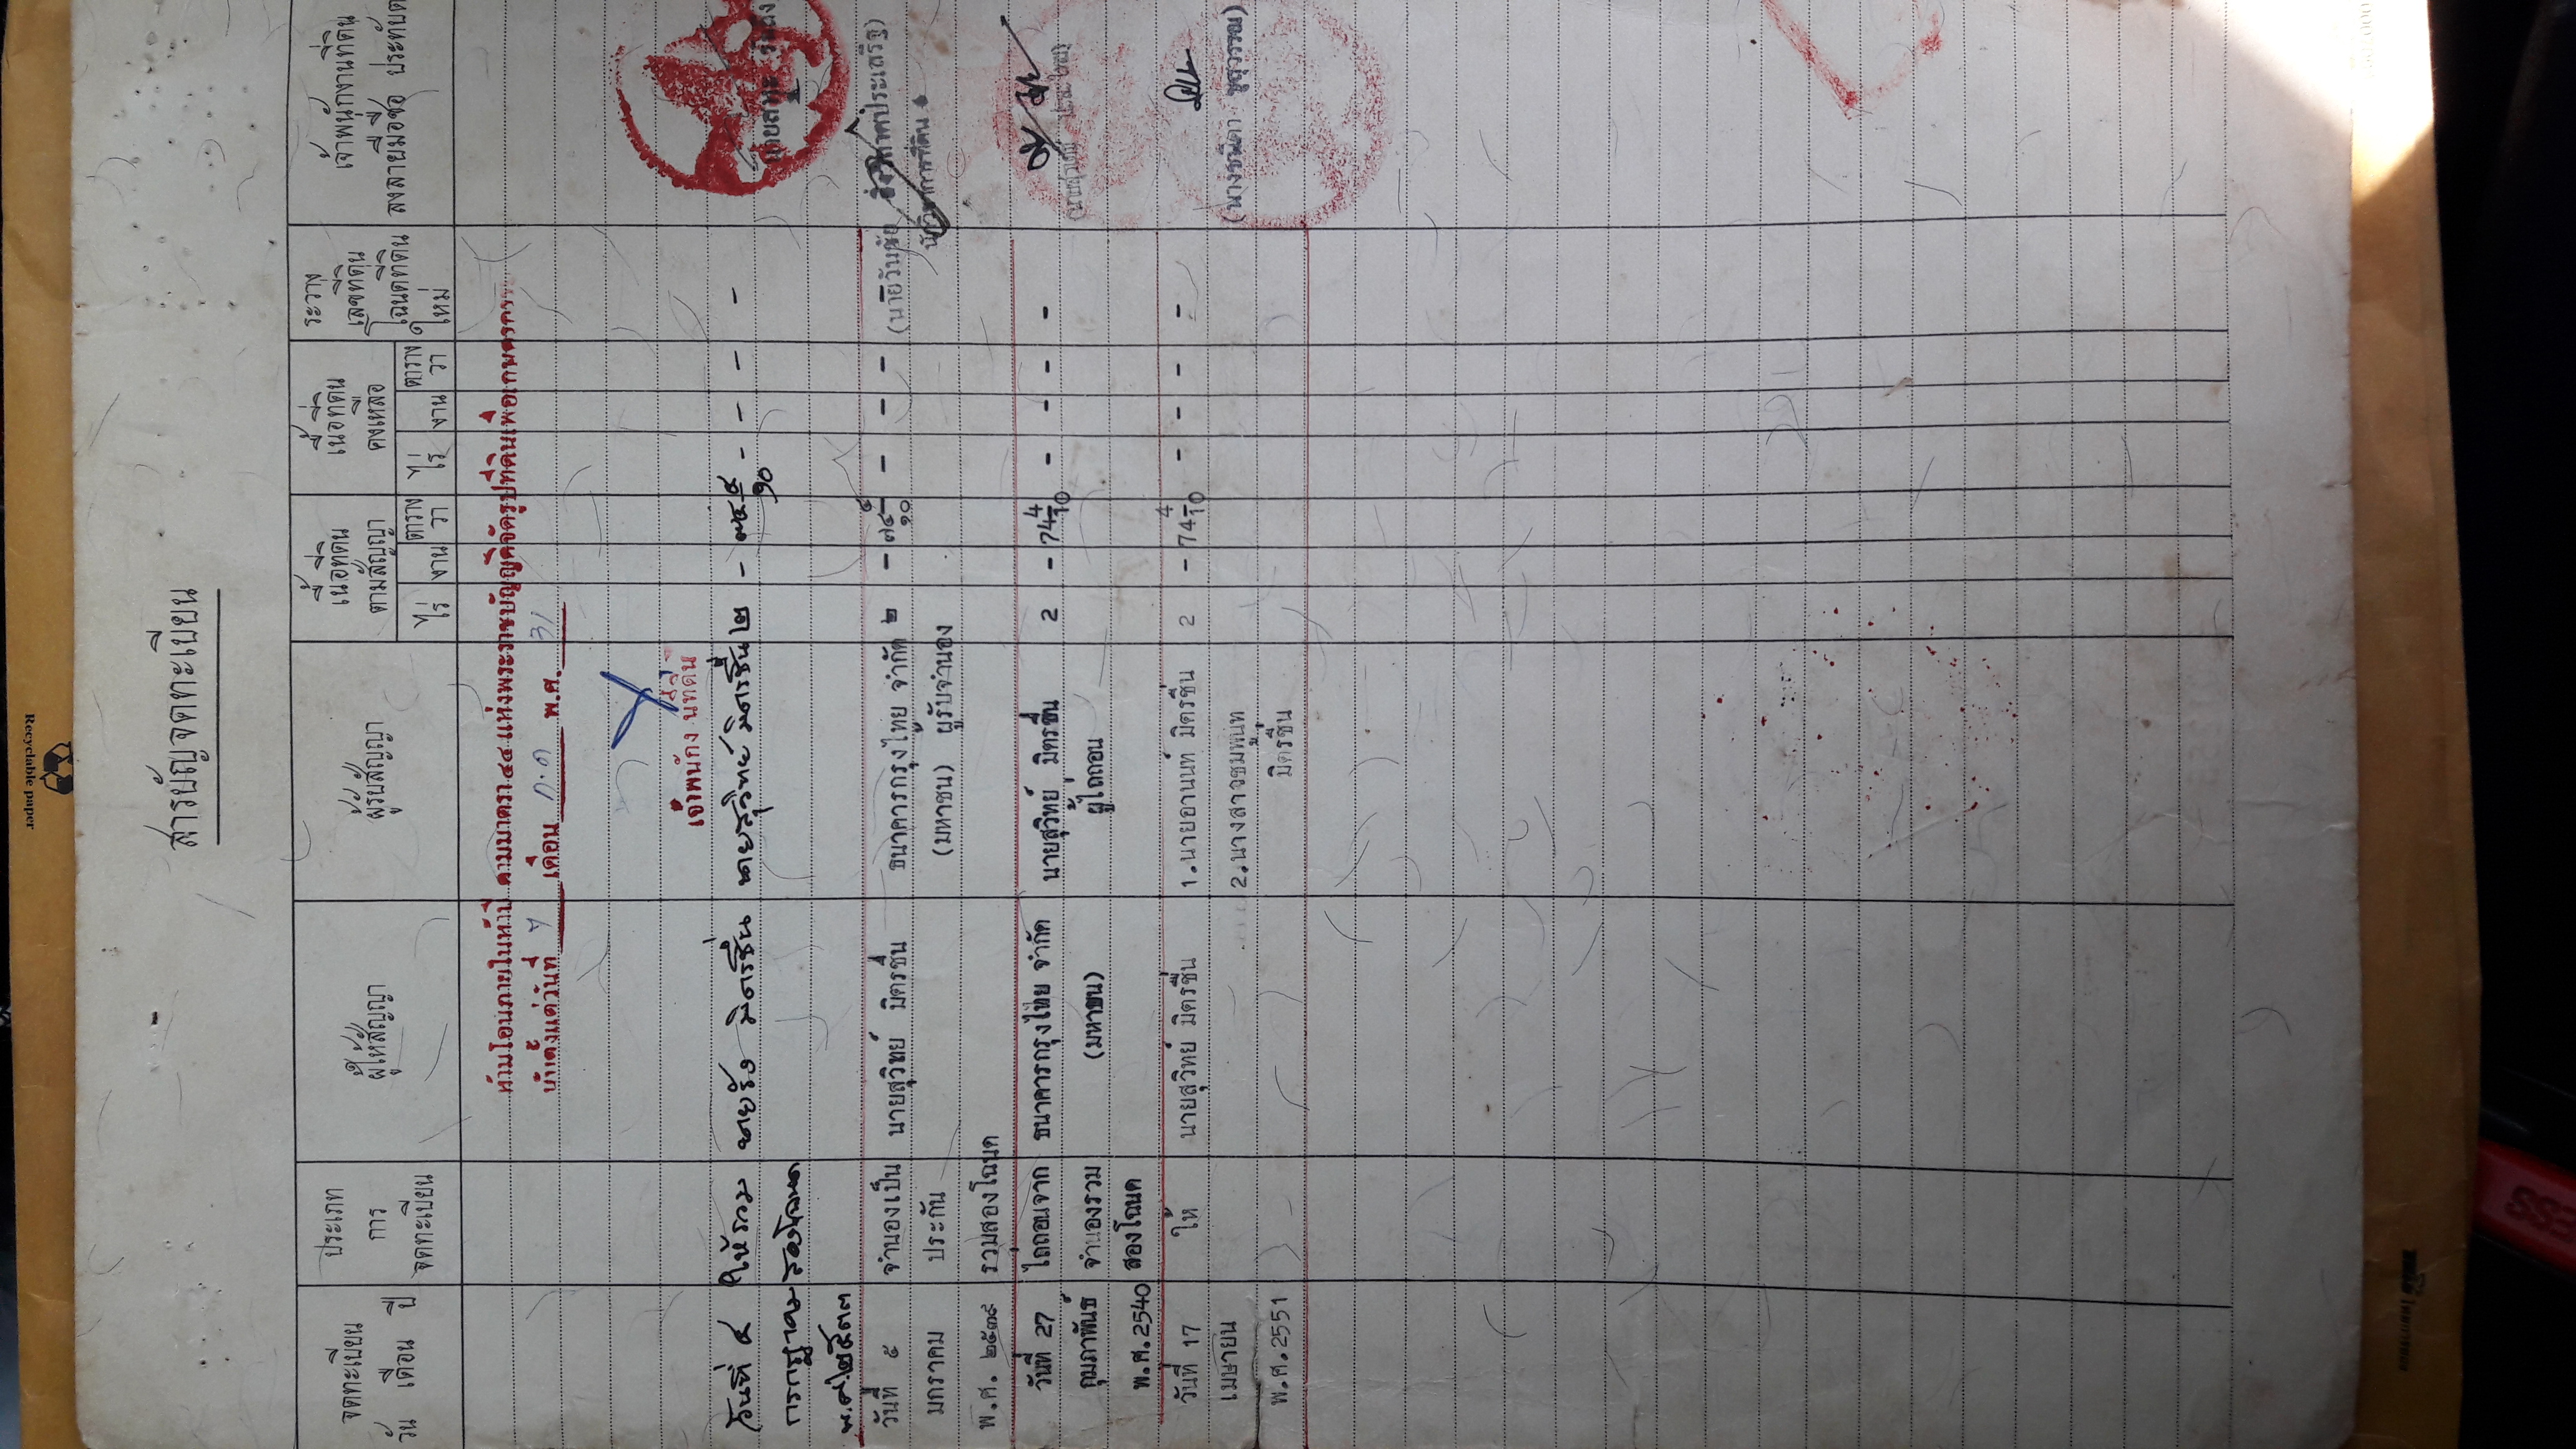 สารบัญจดทะเบียน
จดทะเบียน
วัน เดือน ปี
ประเภท
การ
จดทะเบียน
ผู้ให้สัญญา
ผู้รับสัญญา
เนื้อที่ดิน
ตามสัญญา
ไร่ งาน ตารางวา
เนื้อที่ดิน
คงเหลือ
ไร่ งาน ตารางวา
ระวาง
เลขที่ดิน
โฉนดที่ดิน
ใหม่
เจ้าพนักงานที่ดิน
ลงลายมือชื่อ ประทับตรา
ห้ามโอนภายในห้าปี ตามมาตรา ๔๔ แห่งพระราชบัญญัติจัดรูปที่ดินเพื่อเกษตรกร
นับตั้งแต่วันที่ ๙ เดือน ก.ค พ.ศ. 31
เจ้าพนักง นที่ดิน
วันที่ ๔ ให้รวม นายรัง มิตรชื่น นายสุวิทย์ มิตรชื่น ๒ - ๗๔ ๔/๑๐ - - - -
กรกฎาคม สองโฉนด
พ.ศ.๒๕๓๓
วันที่ ๕ จำนองเป็น นายสุวิทย์ มิตรชื่น ธนาคารกรุงไทย จำกัด ๒ - ๗๔ ๔/๑๐ - - - (นายวันชัย ประเสริฐ)
มกราคม ประกัน (มหาชน) ผู้รับจำนอง นักวิชาการที่ดิน ๔
พ.ศ. ๒๕๓๙ รวมสองโฉนด
วันที่ 27 ไถ่ถอนจาก ธนาคารกรุงไทย จำกัด นายสุวิทย์ มิตรชื่น 2 - 74 4/10 - - - -
กุมภาพันธ์ จำนองรวม (มหาชน) ผู้ไถ่ถอน
พ.ศ.2540 สองโฉนด
วันที่ 17 ให้ นายสุวิทย์ มิตรชื่น 1.นายอานนท์ มิตรชื่น 2 - 74 4/10 - - - -
เมษายน 2.นางสาวชมพูนุท
พ.ศ.2551 มิตรชื่น
Recyclable paper